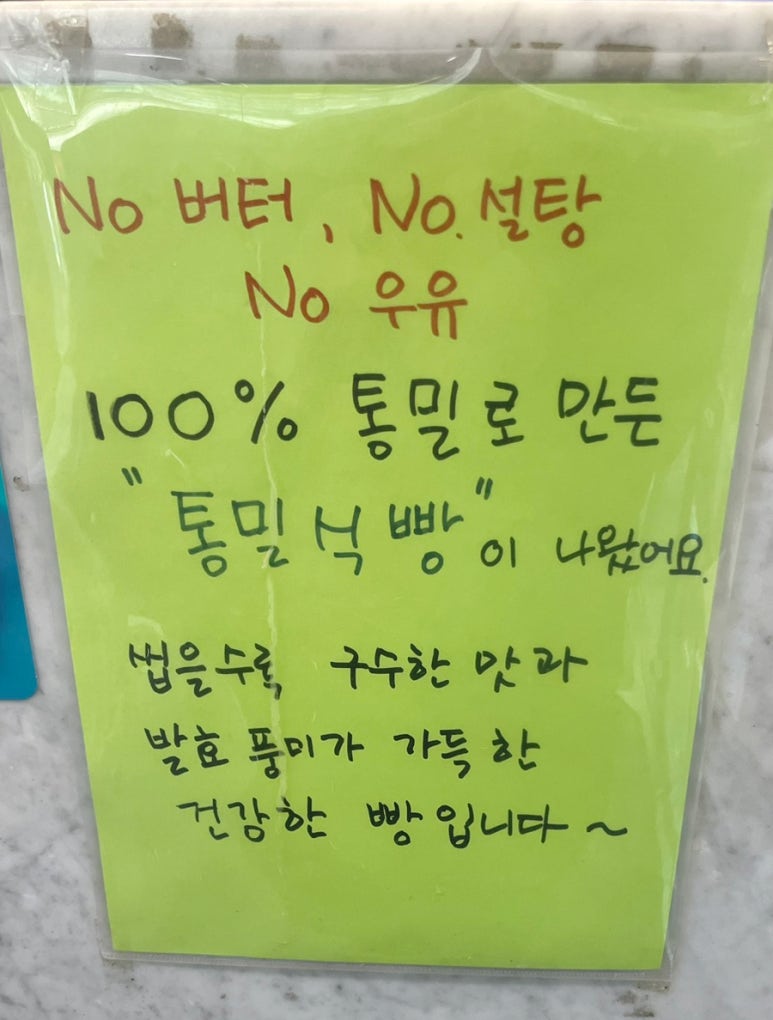 No 버터, No. 설탕
No 우유
100% 통밀로 만든
"통밀식빵"이 나왔어요.
씹을수록 구수한 맛과
발효 풍미가 가득한
건강한 빵입니다~